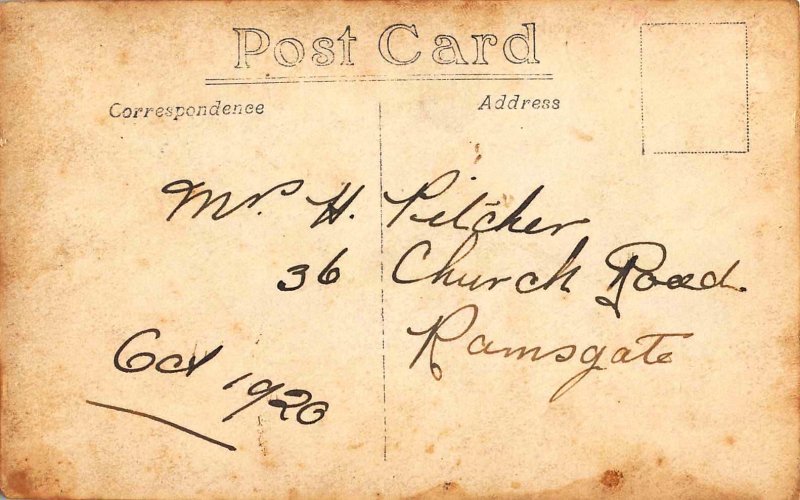 Post Card
Correspondence Address
Mr. H. Pitcher
36 Church Road.
Ramsgate
Oct 1920